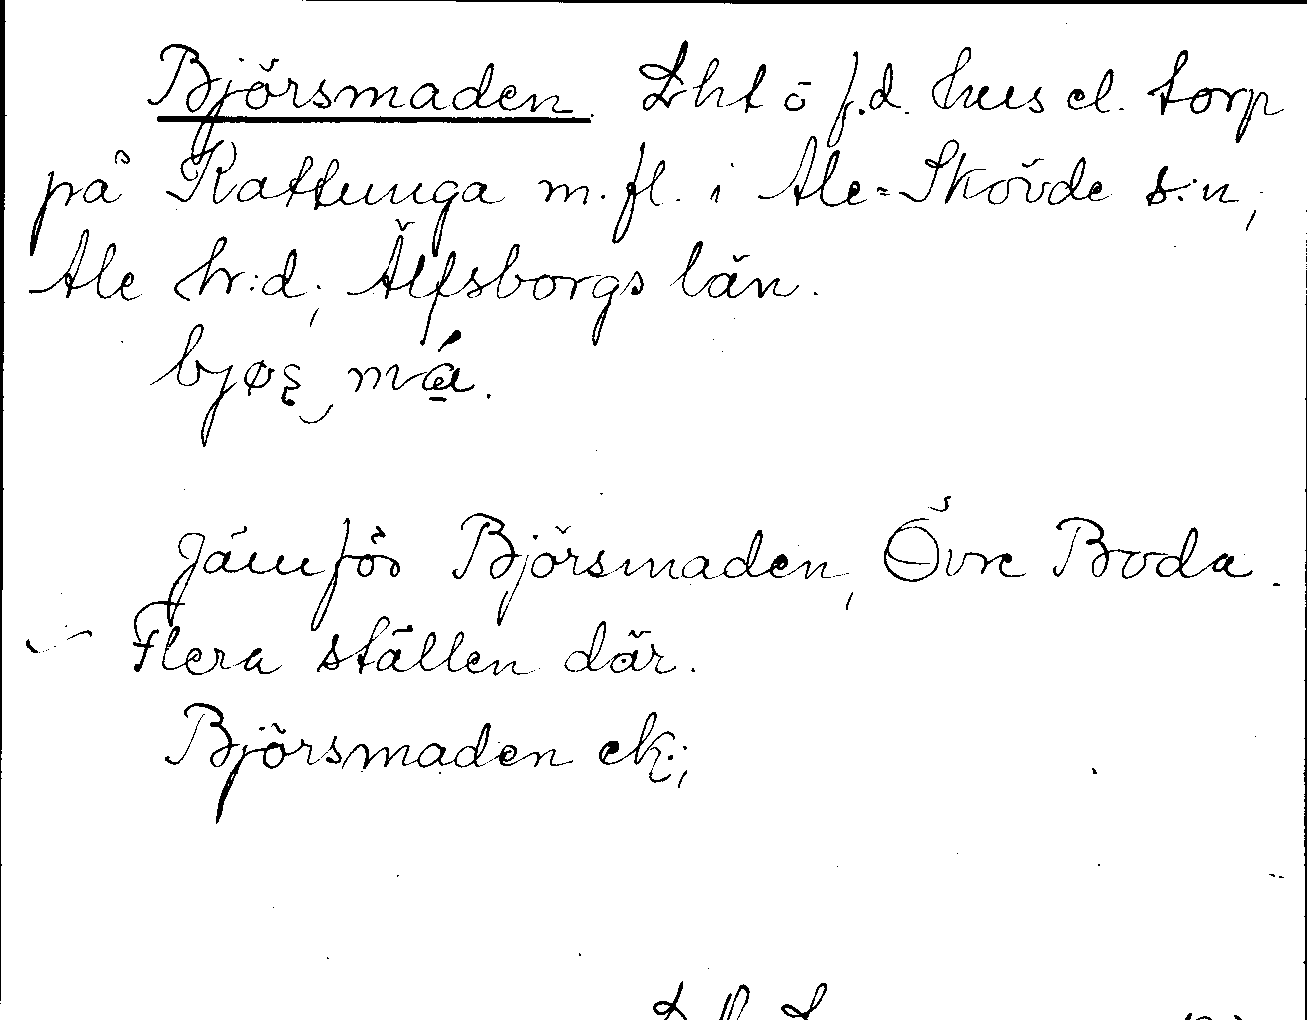 Björsmaden. Lht o f.d. hus el. torp
på Rattunga m.fl. i Ale-Skövde s:n,
Ale hr:d, Älfsborgs län.
bjøʂ má.
Jämför Björsmaden, Övre Boda.
Flera ställen där.
Björsmaden ek.;